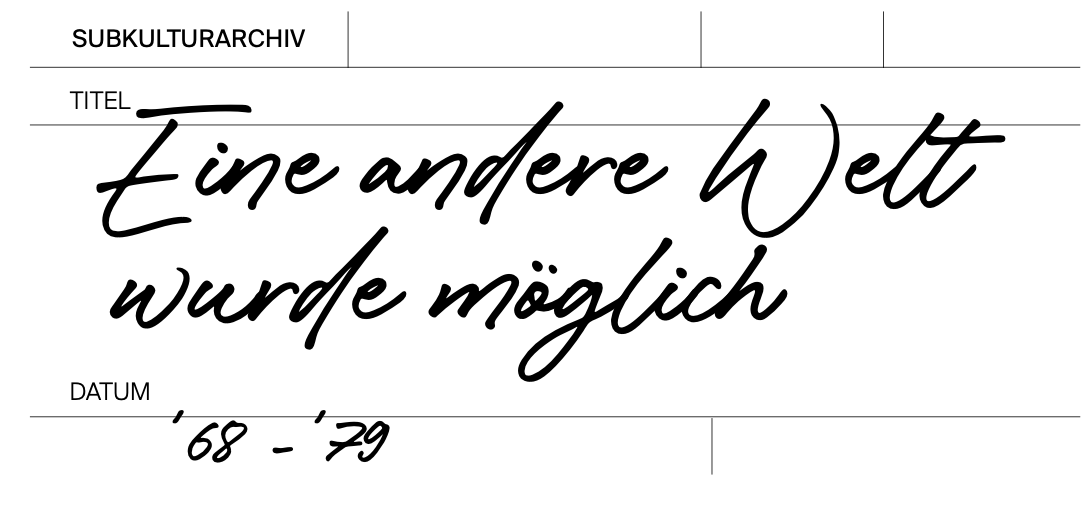 SUBKULTURARCHIV
TITEL
Eine andere Welt
wurde möglich
DATUM
'68 - '79